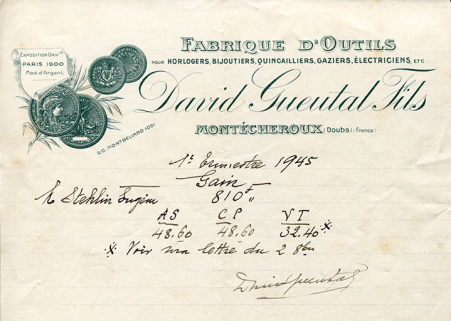 Exposition Univlle
PARIS 1900
Méd. d'Argent
FABRIQUE D'OUTILS
POUR HORLOGERS, BIJOUTIERS, QUINCAILLIERS, GAZIERS, ÉLECTRICIENS, ETC.
David Gueutal Fils
MONTÉCHEROUX (Doubs) (France)
R.C. MONTBÉLIARD 1051
1er Trimestre 1945
Gain
Stehlin Eugène 810 F
AS CP VT
48.60 48.60 32.40 *
* Voir ma lettre du 2 8bre
David Gueutal